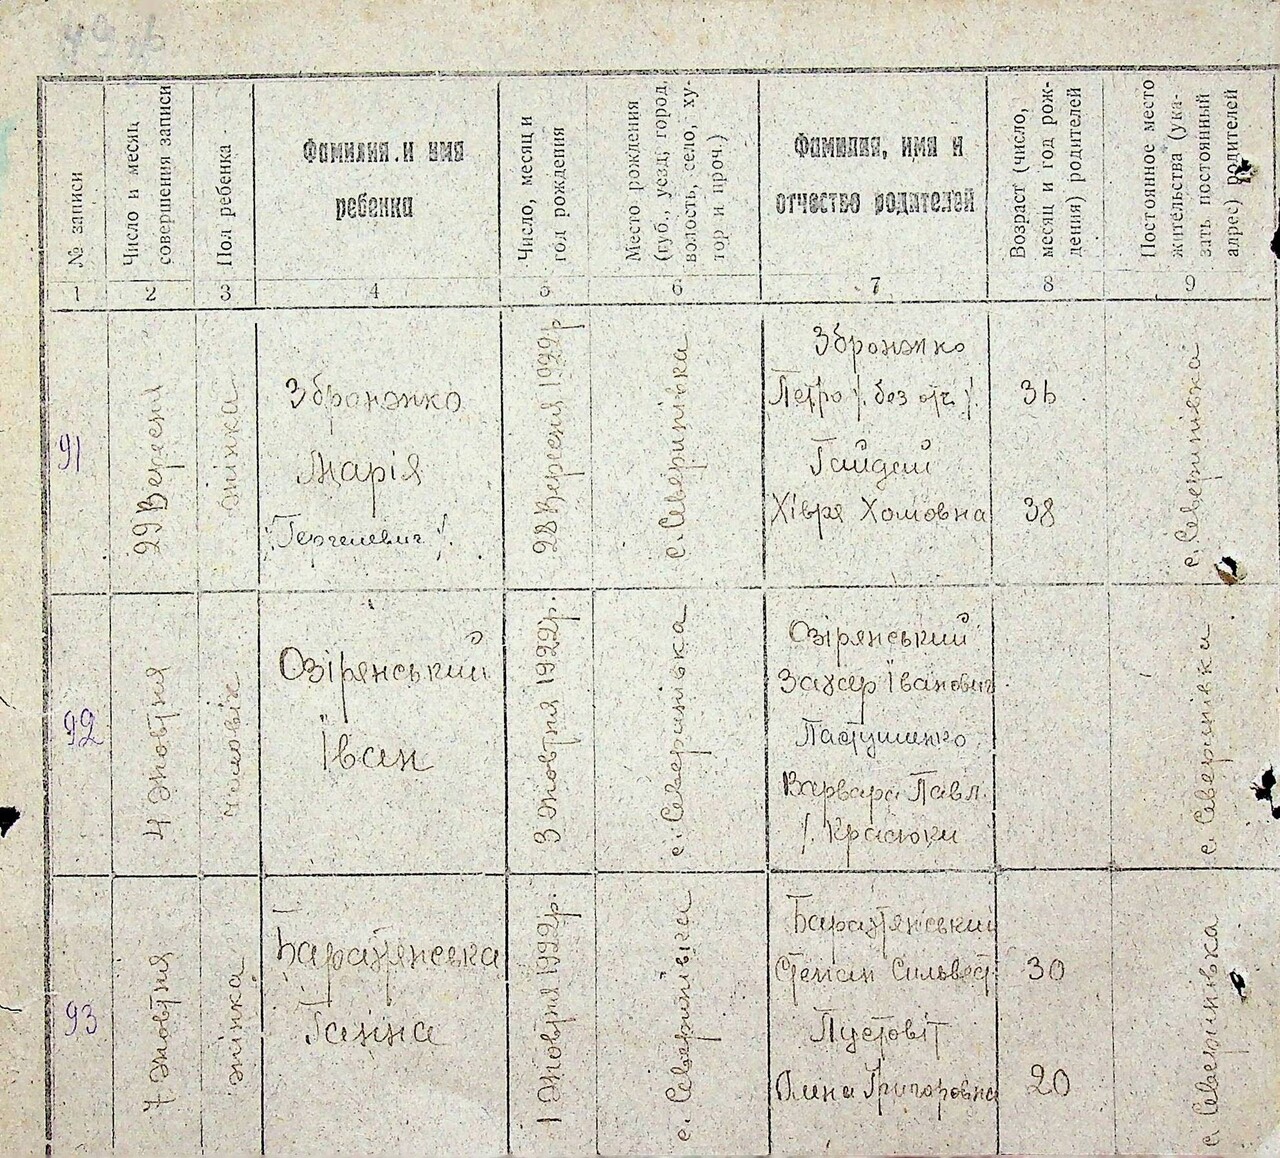 № записи
Число и месяц
совершения записи
Пол ребенка
Фамилия и имя
ребенка
Число, месяц и
год рождения
Место рождения
(губ., уезд, город
волость, село, ху-
тор и проч.)
Фамилия, имя и
отчество родителей
Возраст (число,
месяц и год рож-
дения) родителей
Постоянное место
жительства (ука-
зать постоянный
адрес) родителей
1 2 3 4 5 6 7 8 9
91
29 Вересня
жінка
Збронжко
Марія
28 Вересня 1922 р
с. Северинівка
Збронжко
Петро /. без отч /.
36
Гайдай
Хівря Хомовна
38
с. Северинівка
92
4 Жовтня
чиловік
Озірянський
Їван
3 Жовтня 1922 р.
с. Северинівка
Озірянський
Їванович
Пастушенко
Варвара Павл.
с. Северинівки
93
7 Жовтня
жінка
Ганна
1 Жовтня 1922 р.
с. Северинівка
Степан Сильвест
30
Пустовіт
Олена Григоровна
20
с. Северинівка